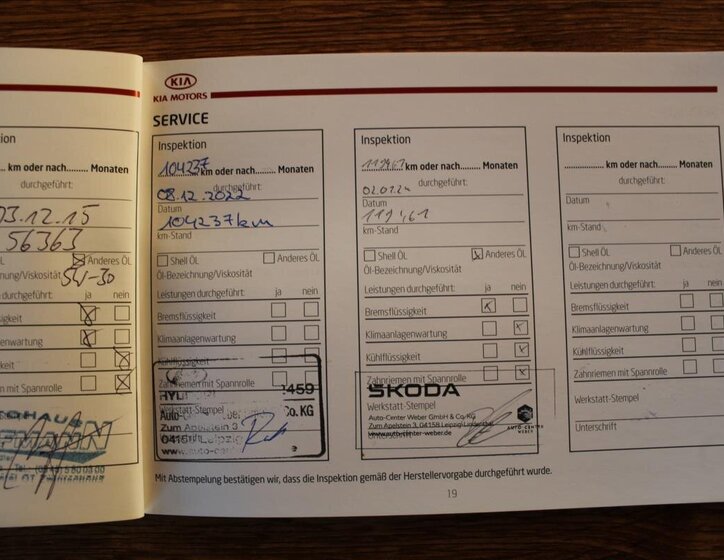 KIA
KIA MOTORS
SERVICE
ion
km oder nach......... Monaten
durchgeführt:
03.12.15
56363
Anderes ÖL
nung/Viskosität
5W-30
durchgeführt: ja nein
sigkeit
agenwartung
keit
mit Spannrolle
OHAUS
MANN
Inspektion
104237 km oder nach......... Monaten
durchgeführt:
08.12.2022
Datum
104237km
km-Stand
Shell ÖL Anderes ÖL
Öl-Bezeichnung/Viskosität
Leistungen durchgeführt: ja nein
Bremsflüssigkeit
Klimaanlagenwartung
Kühlflüssigkeit
Zahnriemen mit Spannrolle
Werkstatt-Stempel
Co. KG
Zum Apelstein 3
Leipzig
Inspektion
119461 km oder nach......... Monaten
durchgeführt:
Datum
119461
km-Stand
Shell ÖL x Anderes ÖL
Öl-Bezeichnung/Viskosität
Leistungen durchgeführt: ja nein
Bremsflüssigkeit x
Klimaanlagenwartung x
Kühlflüssigkeit x
Zahnriemen mit Spannrolle x
SKODA
Werkstatt-Stempel
Auto-Center Weber GmbH & Co. KG
Zum Apelstein 3, 04158 Leipzig/Lindenthal
www.auto-center-weber.de
Unterschrift
AUTO-CENTER
WEBER
Inspektion
......... km oder nach......... Monaten
durchgeführt:
Datum
km-Stand
Shell ÖL Anderes ÖL
Öl-Bezeichnung/Viskosität
Leistungen durchgeführt: ja nein
Bremsflüssigkeit
Klimaanlagenwartung
Kühlflüssigkeit
Zahnriemen mit Spannrolle
Werkstatt-Stempel
Unterschrift
Mit Abstempelung bestätigen wir, dass die Inspektion gemäß der Herstellervorgabe durchgeführt wurde.
19